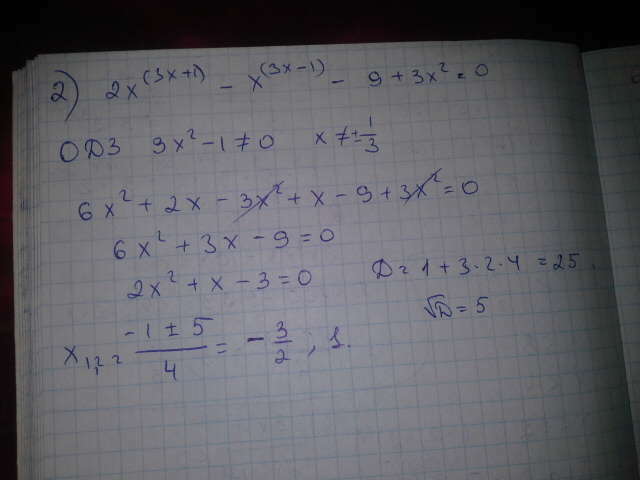 2) 2x^(3x+1) - x^(3x-1) - 9 + 3x² = 0
ОДЗ 9x² - 1 ≠ 0 x ≠ ± 1/3
6x² + 2x - 3x² + x - 9 + 3x² = 0
6x² + 3x - 9 = 0
2x² + x - 3 = 0 D = 1 + 3·2·4 = 25
√D = 5
x₁,₂ = (-1 ± 5)/4 = -3/2 ; 1.